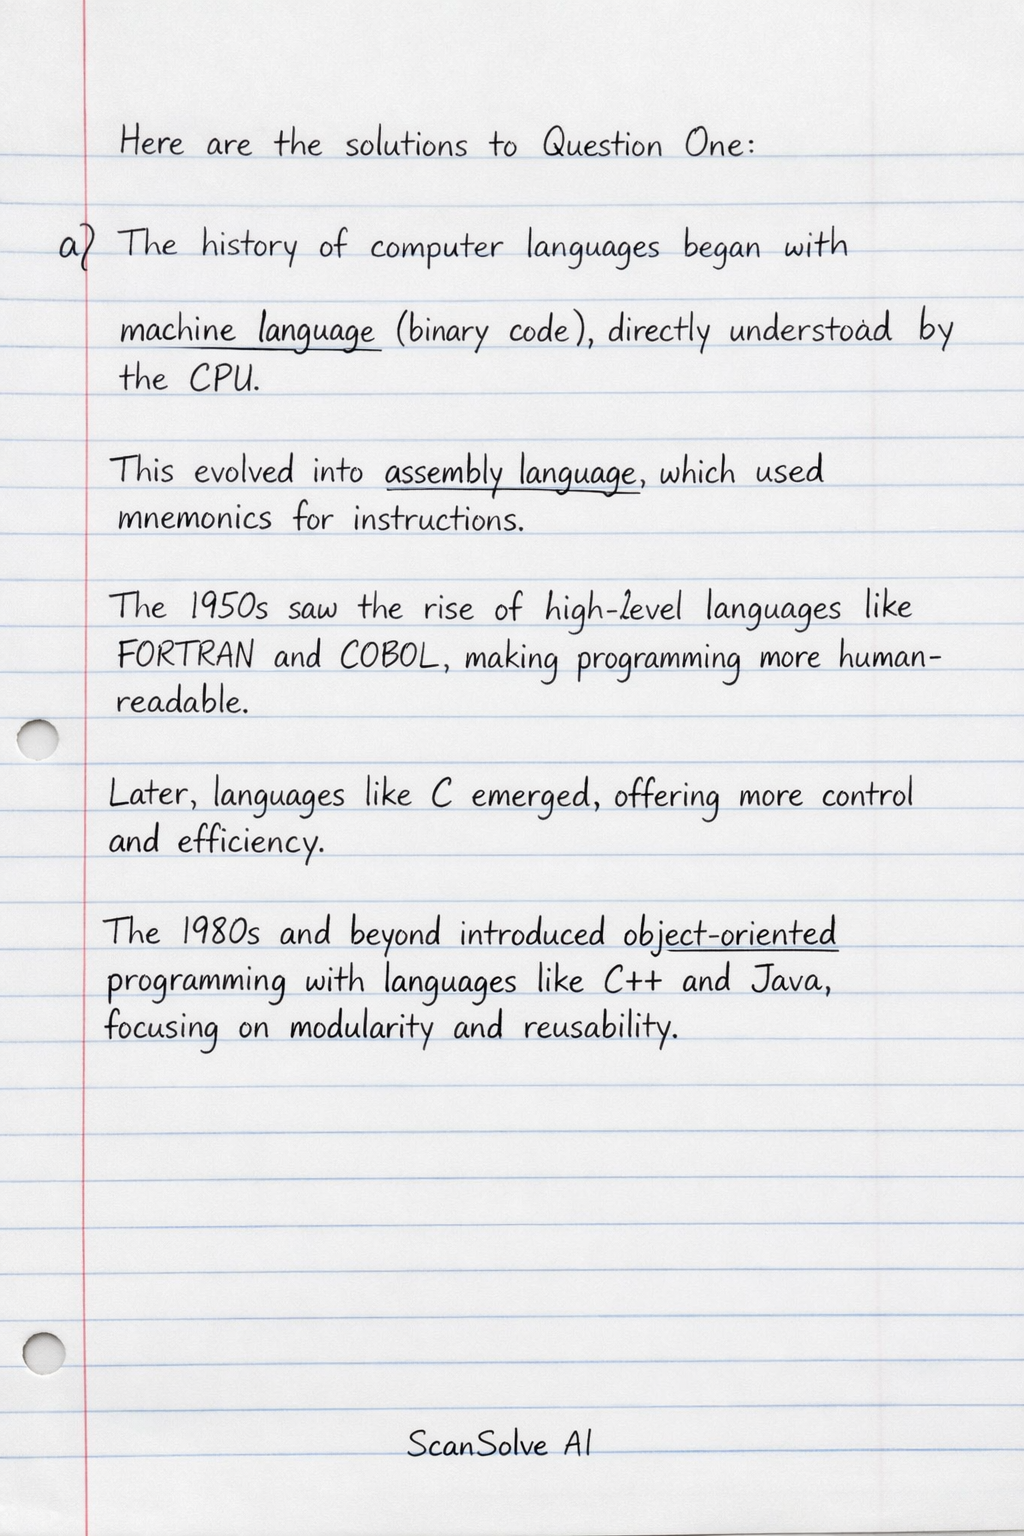 Here are the solutions to Question One:
a) The history of computer languages began with
machine language (binary code), directly understood by
the CPU.
This evolved into assembly language, which used
mnemonics for instructions.
The 1950s saw the rise of high-level languages like
FORTRAN and COBOL, making programming more human-
readable.
Later, languages like C emerged, offering more control
and efficiency.
The 1980s and beyond introduced object-oriented
programming with languages like C++ and Java,
focusing on modularity and reusability.
ScanSolve AI